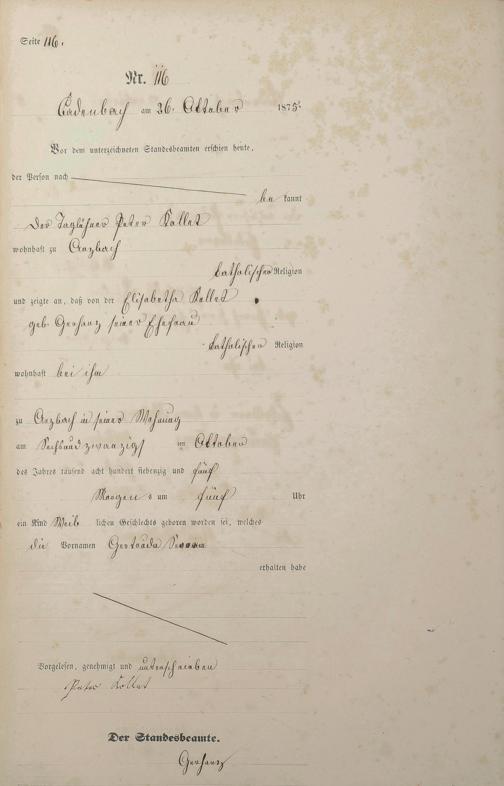 Seite 116.
Nr. 116
Cadenbach am 26. Oktober 1875.
Vor dem unterzeichneten Standesbeamten erschien heute,
der Person nach
be kannt
der Taglöhner Peter Kollet
wohnhaft zu Arzbach
katholischer Religion
und zeigte an, daß von der Elisabetha Kollet
geb. Gerharz seiner Ehefrau
katholischer Religion
wohnhaft bei ihm
zu Arzbach in seiner Wohnung
am Sechsundzwanzigst im Oktober
des Jahres tausend acht hundert siebenzig und fünf
Morgen s um fünf Uhr
ein Kind Weib lichen Geschlechts geboren worden sei, welches
die Vornamen Gertruda
erhalten habe
Vorgelesen, genehmigt und unterschrieben
Peter Kollet
Der Standesbeamte.
Gerharz